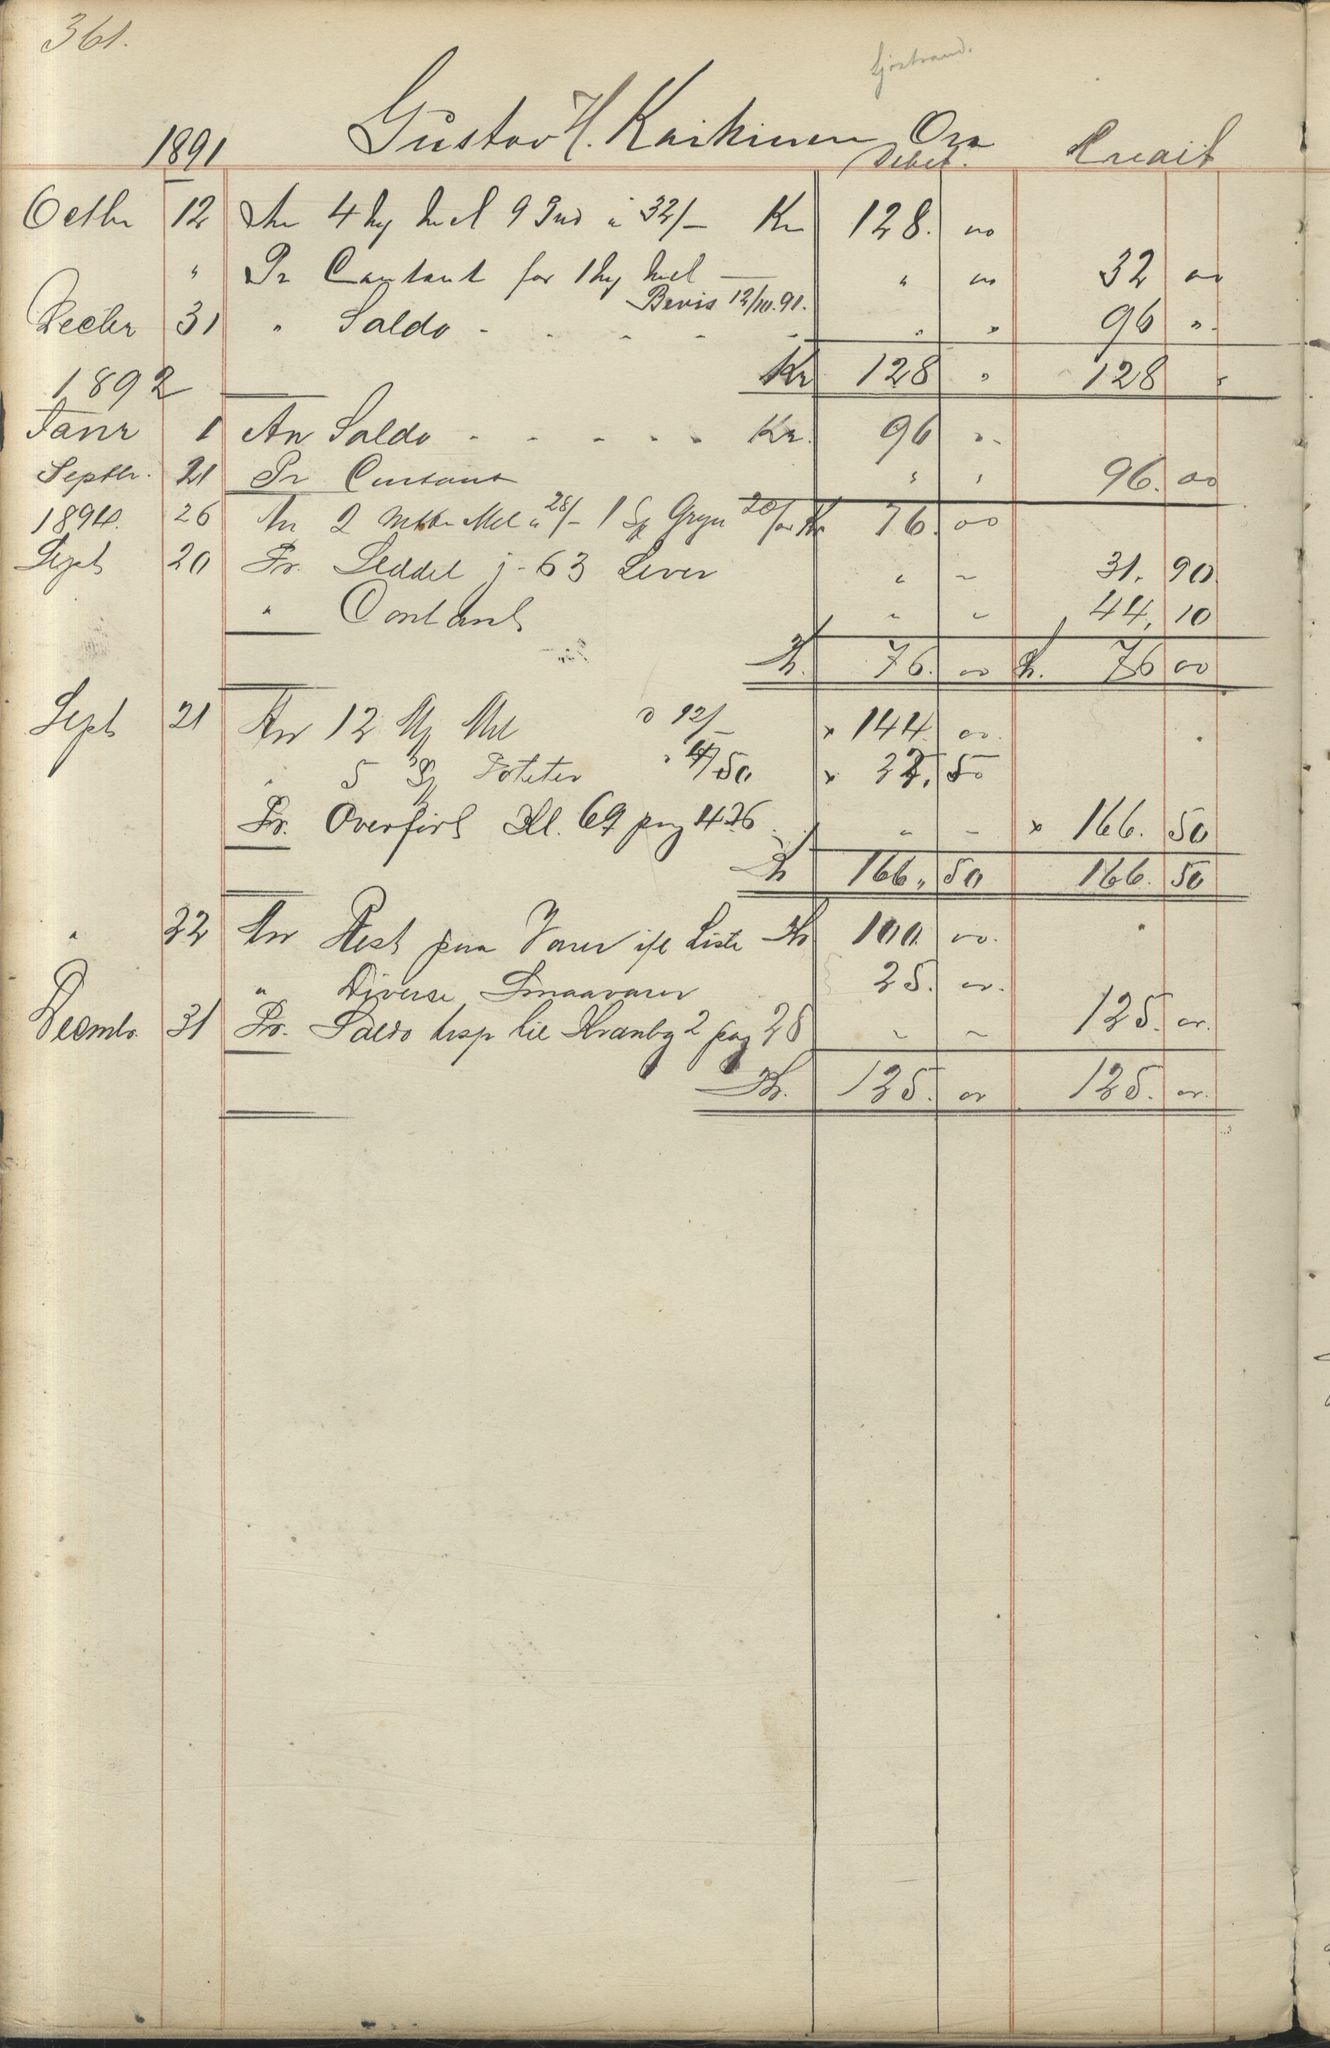 361.
1891 Gustav H. Karkinen
Debet. Kredit
Octbr 12 An 4 Mel 9 a 32/- Kr 128. 00
" Pr Contant for 1 Mel " 00 32 00
Bevis 12/10.91.
Decbr 31 " Saldo - - - - - " " 96 ".
1892 Kr 128 " 128 "
Janr 1 An Saldo - - - - - Kr. 96 "-
Septbr. 21 Pr Contant " " 96. 00
1894. 26 An 2 Mel a 28/- 1 Sk Gryn 20/00 Kr 76. 00
Sept 20 Pr. Seddel j. 63 Lever " ~ 31. 90
" Contant " " 44, 10
Kr. 76. 00 Kr. 76 00
Sept 21 An 12 Mel a 12/- x 144. 00.
" 5 Sk Poteter " 4/50 x 22. 50
Pr. Overfört Kl. 69 pag 426 " - x 166. 50
Kr 166. 50 166. 50
" 22 An Rest paa Varer ifl Liste Kr 100. 00.
" Diverse Smaavarer 25. 00.
Decmbr. 31 Pr. Saldo trsp til Kranbg 2 pag 28 " ~ 125. 00.
Kr. 125. 00 125. 00.